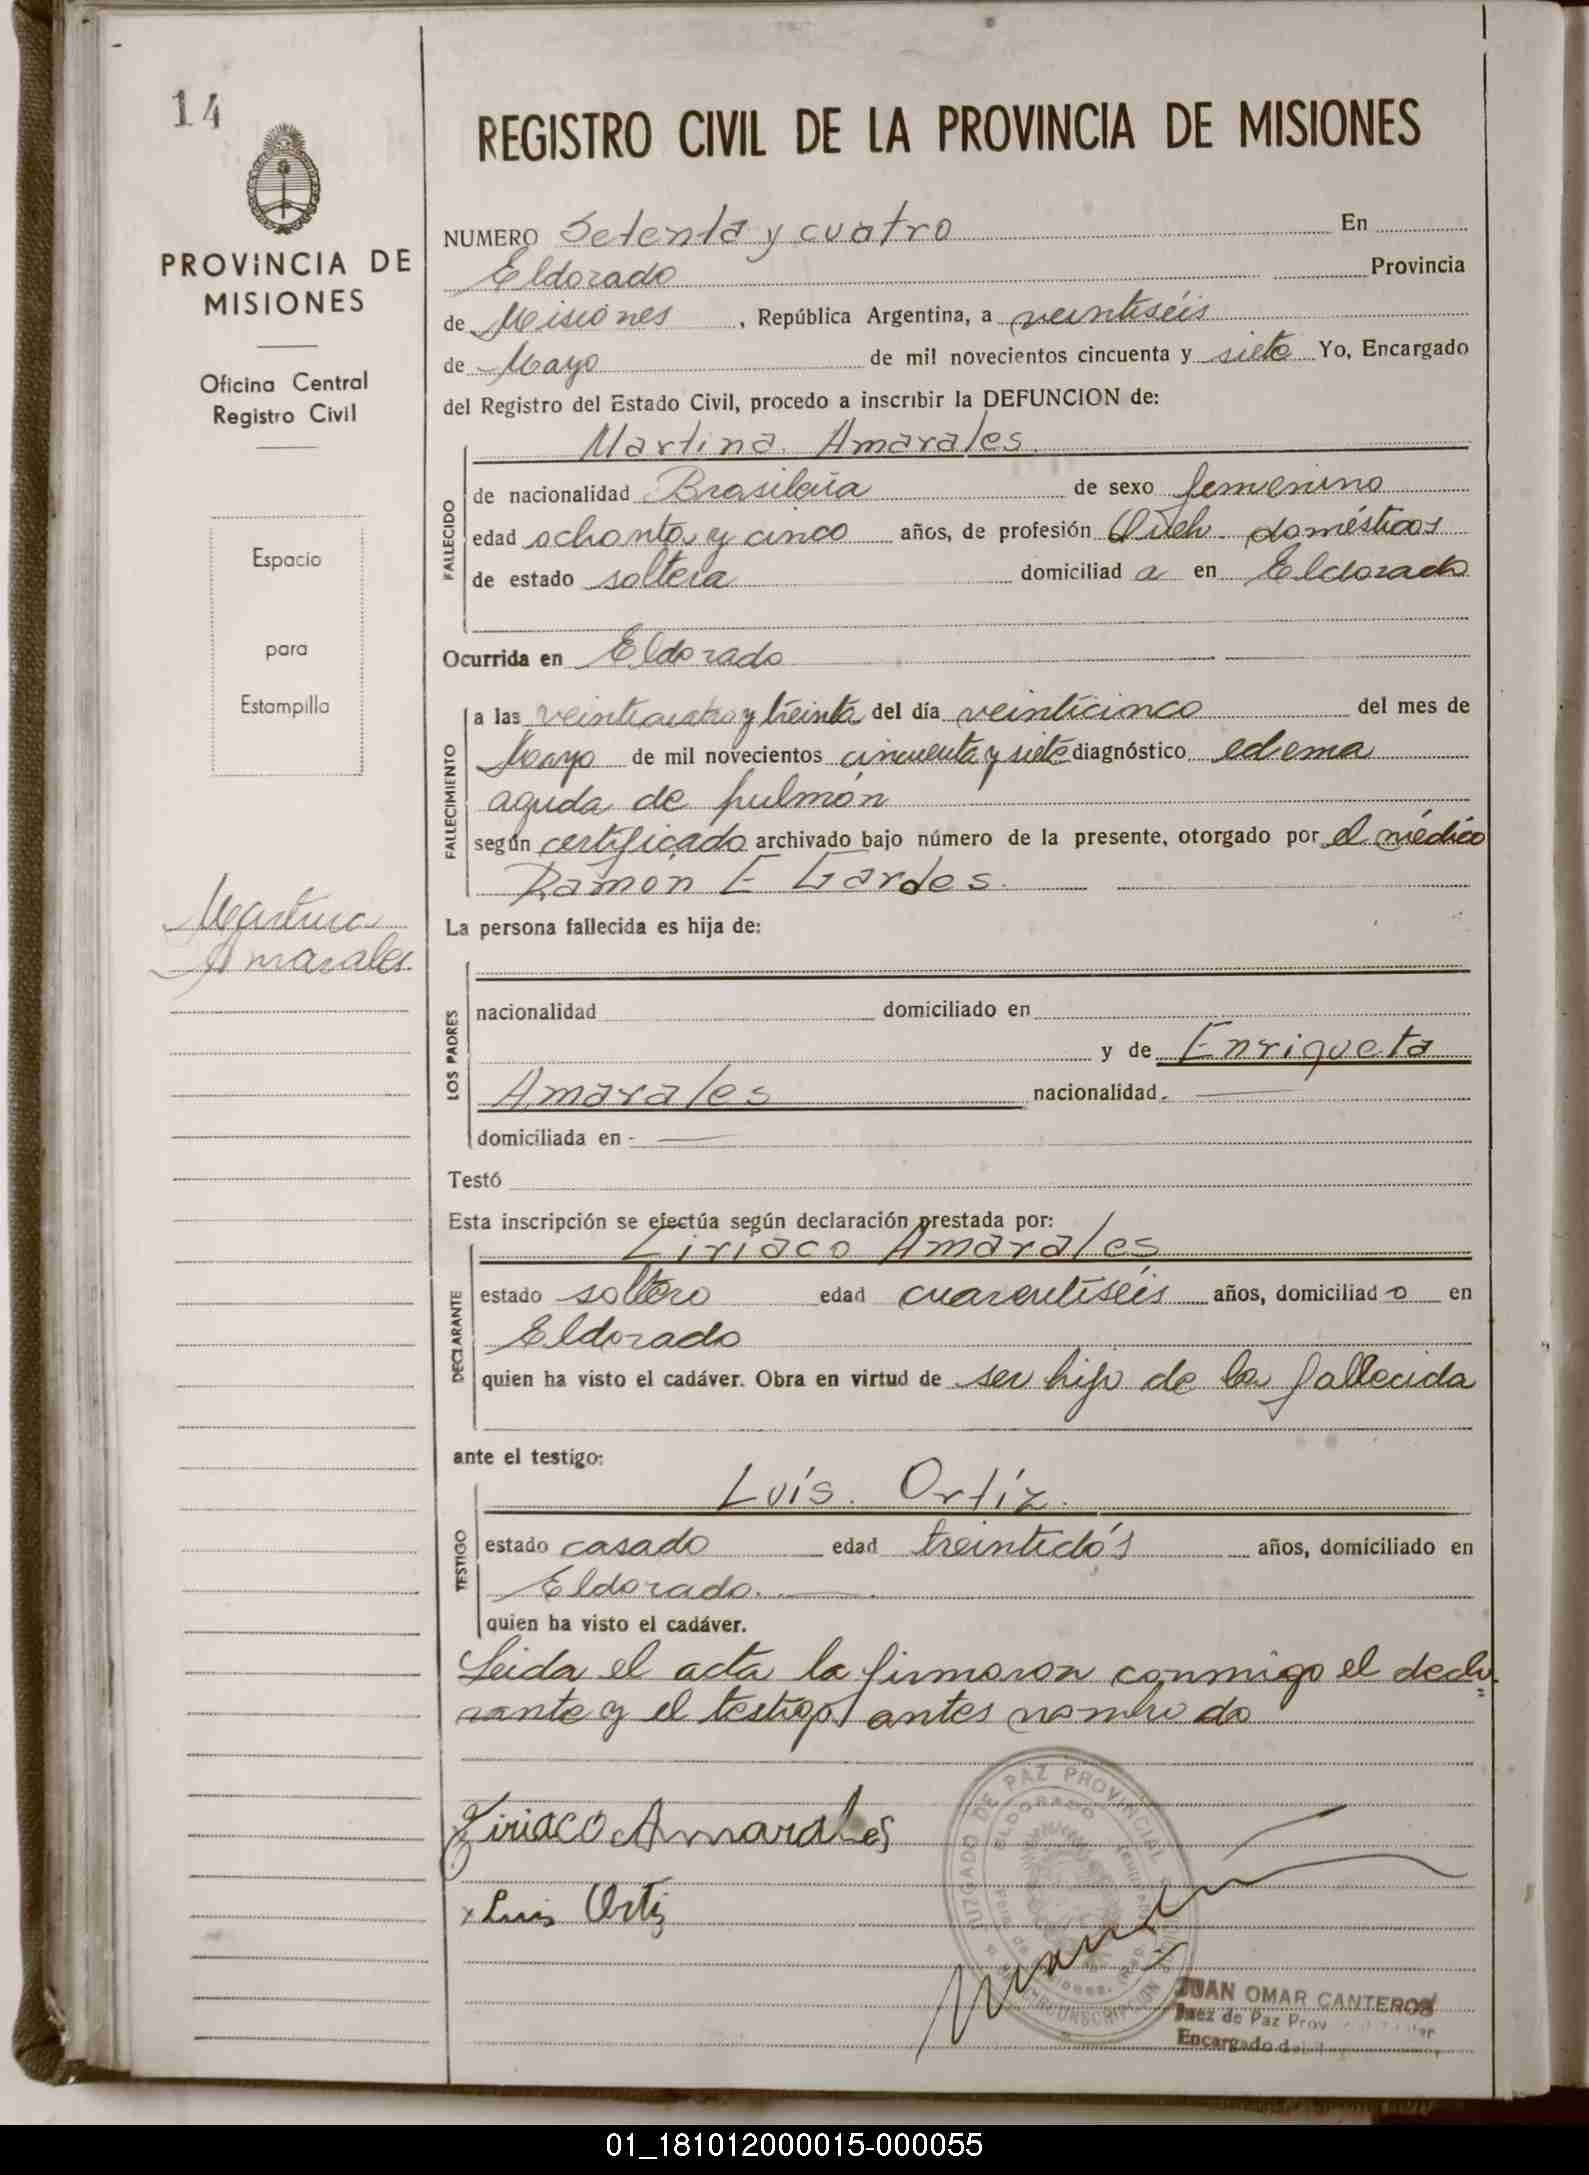 14
PROVINCIA DE
MISIONES
Oficina Central
Registro Civil
Espacio
para
Estampilla
Martina
Amarales
REGISTRO CIVIL DE LA PROVINCIA DE MISIONES
NUMERO Setenta y cuatro En
Eldorado Provincia
de Misiones, República Argentina, a veintiséis
de Mayo de mil novecientos cincuenta y siete Yo, Encargado
del Registro del Estado Civil, procedo a inscribir la DEFUNCION de:
Martina Amarales.
FALLECIDO
de nacionalidad Brasileña de sexo femenino
edad ochenta y cinco años, de profesión Queh. domésticos
de estado soltera domiciliad a en Eldorado
Ocurrida en Eldorado
FALLECIMIENTO
a las veinticuatro y treinta del día veinticinco del mes de
Mayo de mil novecientos cincuenta y siete diagnóstico edema
aguda de pulmón
según certificado archivado bajo número de la presente, otorgado por el médico
Ramón E Gardes.
La persona fallecida es hija de:
LOS PADRES
nacionalidad domiciliado en
y de Enriqueta
Amarales nacionalidad. —
domiciliada en - —
Testó
Esta inscripción se efectúa según declaración prestada por:
Ciriaco Amarales
DECLARANTE
estado soltero edad cuarentiséis años, domiciliad o en
Eldorado
quien ha visto el cadáver. Obra en virtud de ser hijo de la fallecida
ante el testigo:
Luís. Ortíz.
TESTIGO
estado casado edad treintidós años, domiciliado en
Eldorado. —
quien ha visto el cadáver.
Leida el acta la firmaron conmigo el decla=
rante y el testigo antes nombrado
Ziriaco Amarales
x Luis Ortiz
JUZGADO DE PAZ PROVINCIAL
ELDORADO
CIRCUNSCRIPCION
JUAN OMAR CANTEROS
Juez de Paz Prov
Encargado del
01_181012000015-000055